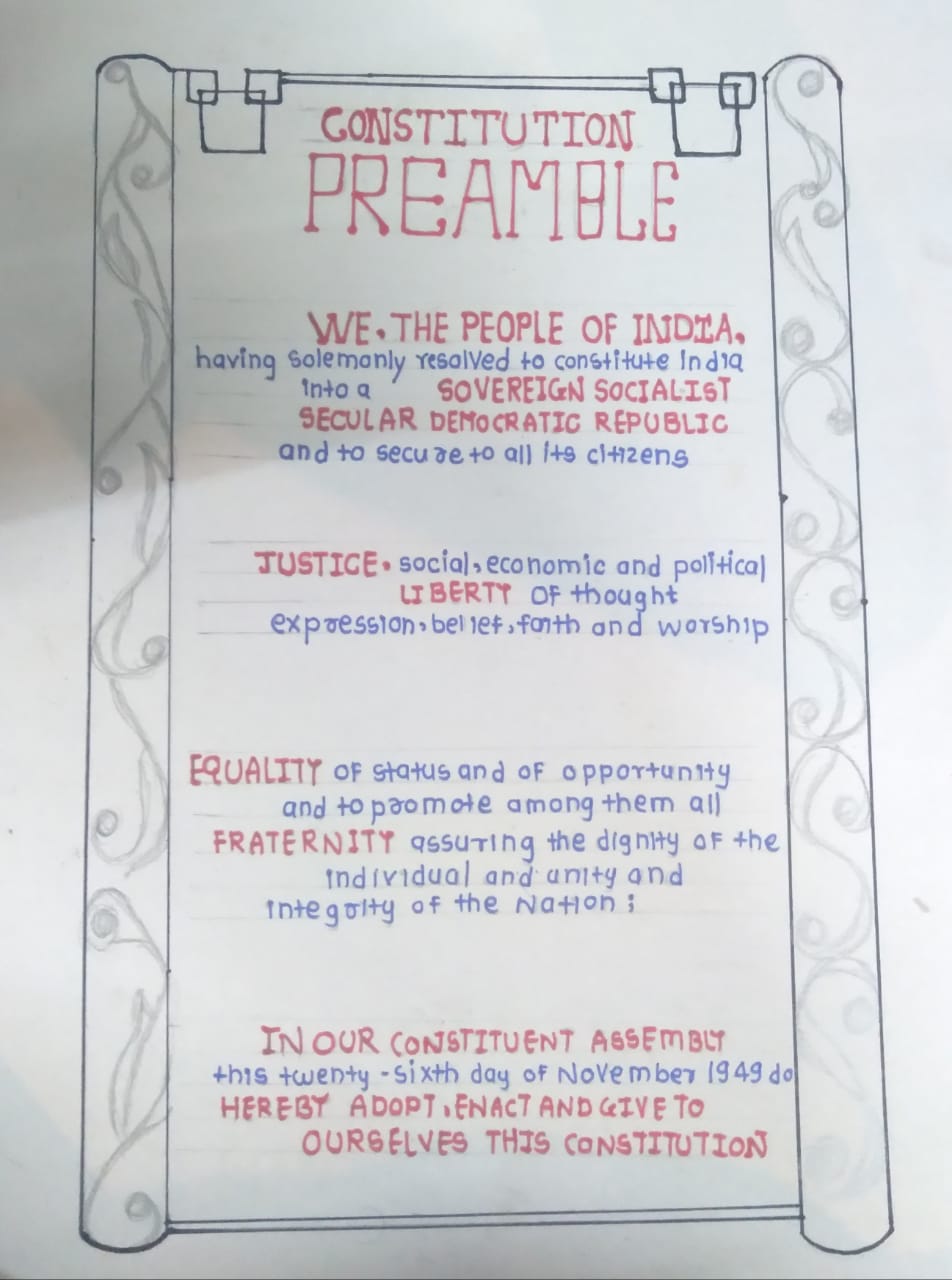 CONSTITUTION
PREAMBLE
WE, THE PEOPLE OF INDIA,
having solemonly resolved to constitute India
into a SOVEREIGN SOCIALIST
SECULAR DEMOCRATIC REPUBLIC
and to secure to all its citizens
JUSTICE, social, economic and political
LIBERTY OF thought
expression, belief, faith and worship
EQUALITY OF status and of opportunity
and to promote among them all
FRATERNITY assuring the dignity of the
individual and unity and
integrity of the Nation;
IN OUR CONSTITUENT ASSEMBLY
this twenty-sixth day of November 1949 do
HEREBY ADOPT, ENACT AND GIVE TO
OURSELVES THIS CONSTITUTION